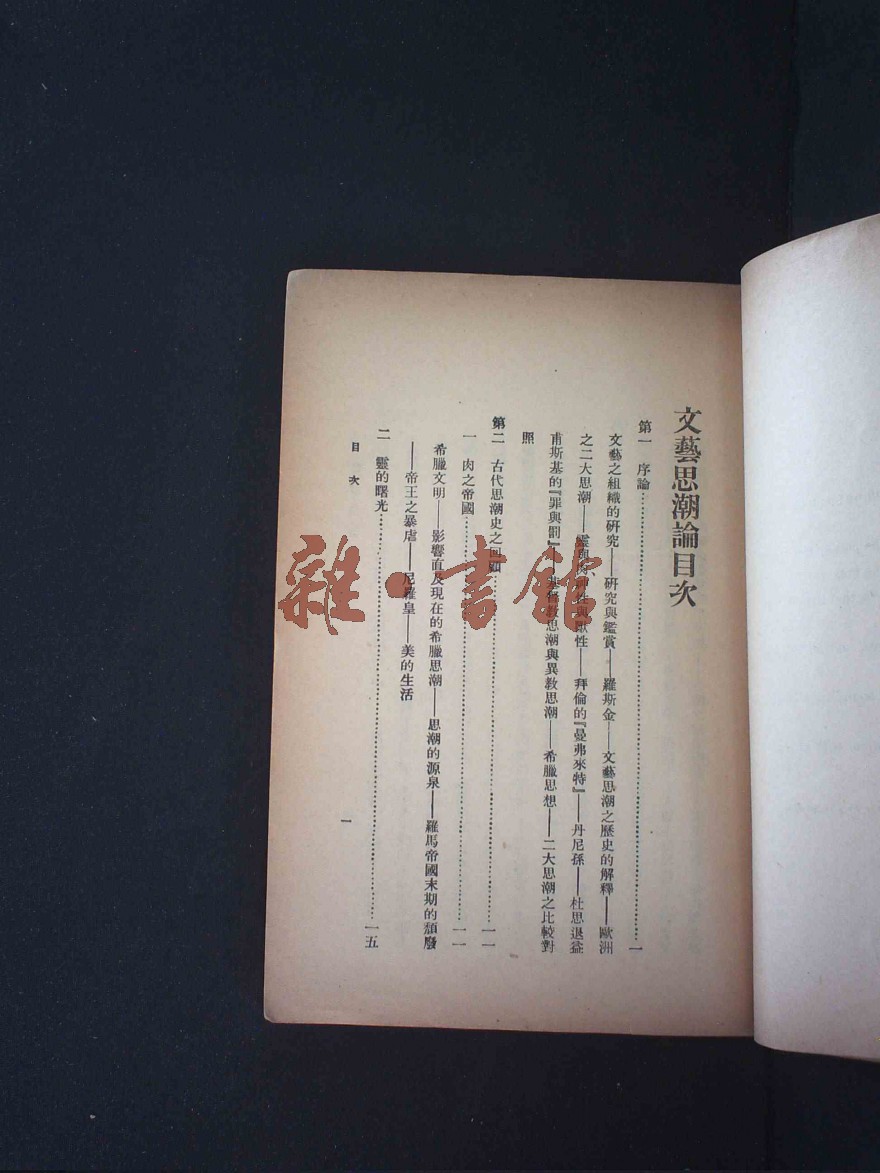 文藝思潮論目次
第一 序論……一
文藝之組織的研究——研究與鑑賞——羅斯金——文藝思潮之歷史的解釋——歐洲
之二大思潮——靈與肉、神性與獸性——拜倫的『曼弗來特』——丹尼孫——杜思退益
甫斯基的『罪與罰』——基督教思潮與異教思潮——希臘思想——二大思潮之比較對
照
第二 古代思潮史之回顧……一一
一 肉之帝國……一一
希臘文明——影響直及現在的希臘思潮——思潮的源泉——羅馬帝國末期的頹廢
——帝王之暴虐——尼羅皇——美的生活
二 靈的曙光……一五
目次
一
雜·書館